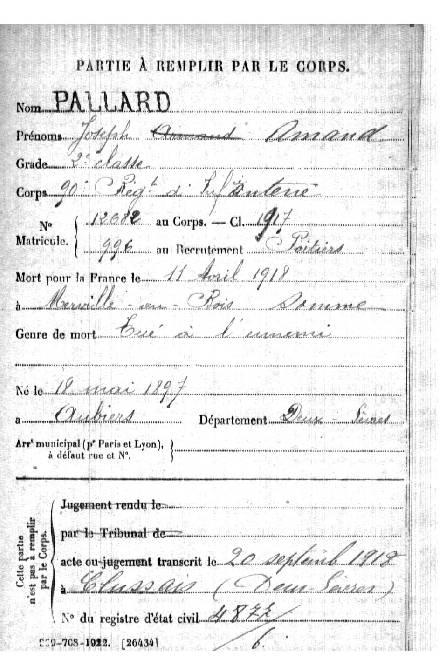 PARTIE À REMPLIR PAR LE CORPS.
Nom PALLARD
Prénoms Joseph Amand Amand
Grade 2e classe
Corps 90e Régt d'Infanterie
No Matricule. 12682 au Corps. — Cl. 1917
996 au Recrutement Poitiers
Mort pour la France le 11 Avril 1918
à Merville-au-Bois Somme
Genre de mort Tué à l'ennemi
Né le 18 mai 1897
à Aubiers Département Deux-Sèvres
Arrt municipal (pr Paris et Lyon), à défaut rue et No.
Cette partie n'est pas à remplir par le Corps.
Jugement rendu le
par le Tribunal de
acte ou jugement transcrit le 20 septemb 1918
à Clussais (Deux Sèvres)
No du registre d'état civil 4877/6.
-708-1922. [26434]